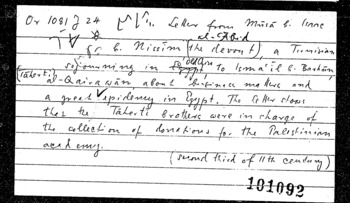 Or 1081 J 24 Letter from Mūsā b. Isaac
al-ʿĀbid
b. Nissim (the devout), a Tunisian
sojourning in to Ismāʿīl b. Barhūn
(Tahertī) al-Qairawān about business matters and
a great epidemy in Egypt. The letter shows
that the Tahertī brothers were in charge of
the collection of donations for the Palestinian
academy.
(second third of 11th century)
101092